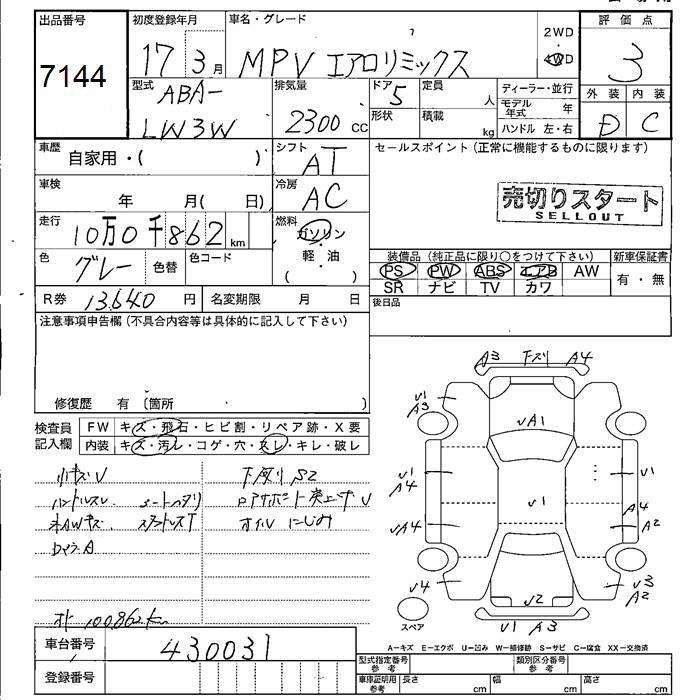 出品番号
7144
初度登録年月
17 3月
車名・グレード
MPV エアロリミックス
2WD
4WD
評価点
3
外装 内装
D C
型式
ABA-
LW3W
排気量
2300 cc
ドア 5
形状
定員 人
積載 kg
ディーラー・並行
モデル年式 年
ハンドル 左・右
車歴
自家用・( )
シフト
AT
セールスポイント(正常に機能するものに限ります)
売切りスタート
SELLOUT
車検
年 月( 日)
冷房
AC
走行
10万0千862km
燃料
ガソリン
・
軽・油
( )
色
グレー
色替
色コード
装備品(純正品に限り○をつけて下さい)
新車保証書
PS PW ABS エアB AW
SR ナビ TV カワ
有・無
後日品
R券 13640円
名変期限 月 日
注意事項申告欄(不具合内容等は具体的に記入して下さい)
修復歴 有〔箇所 〕
検査員
記入欄
FW キズ・飛石・ヒビ割・リペア跡・X要
内装 キズ・汚レ・コゲ・穴・スレ・キレ・破レ
小キズV
下廻り S2
ハンドルスレ
オイルにじみ
100862km
A3 下スリ A4
V1
A3
VA1
V1
A4
V1
V1
VA4
A4
A2
V4
V2
V3
A2
スペア
V1 A3
A−キズ E−エクボ U−凹み W−補修跡 S−サビ C−腐食 XX−交換済
車台番号
430031
登録番号
型式指定番号
参考
類別区分番号
参考
車庫証明用
参考
長さ cm
幅 cm
高さ cm